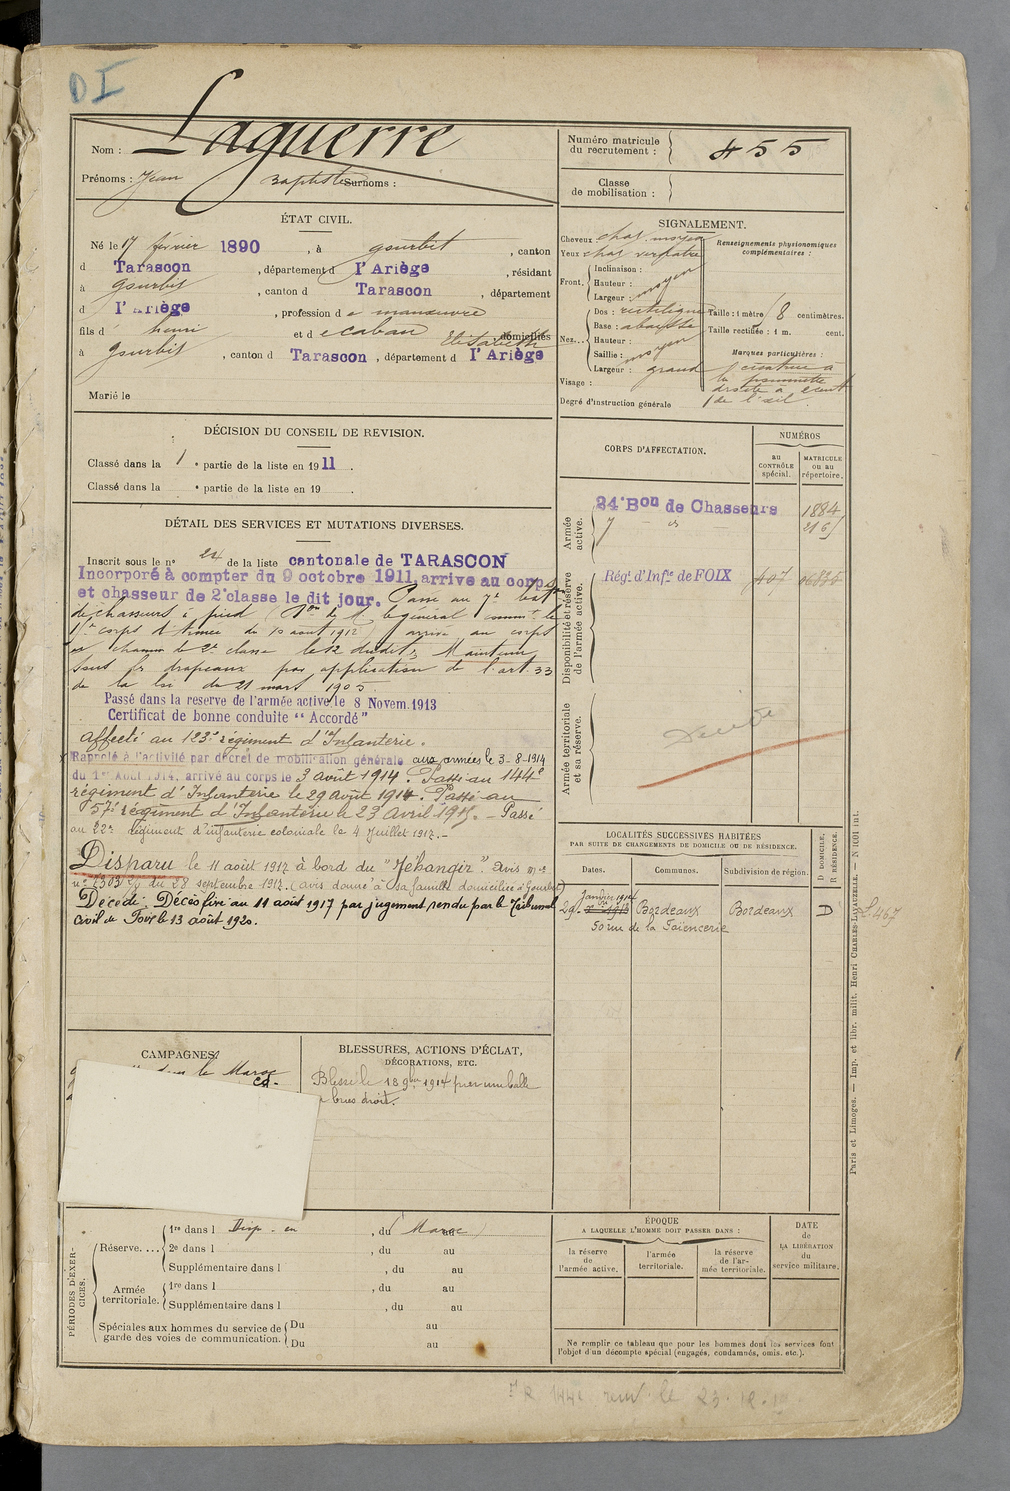 DI
Nom : Laguerre
Prénoms : Jean Baptiste Surnoms :
Numéro matricule
du recrutement : 455
Classe
de mobilisation :
ÉTAT CIVIL.
Né le 17 février 1890, à Gourbit, canton
d Tarascon, département d l'Ariège, résidant
à Gourbit, canton d Tarascon, département
d l'Ariège, profession d e manœuvre
fils d' henri et d e caban Elisabeth domiciliés
à Gourbit, canton d Tarascon, département d l'Ariège
Marié le
SIGNALEMENT.
Cheveux chat. moyen
Yeux chat. verdatre
Front. Inclinaison :
Hauteur : moyen
Largeur :
Nez... Dos : rectiligne
Base : abaissée
Hauteur :
Saillie : moyen
Largeur : grand
Visage :
Degré d'instruction générale
Renseignements physionomiques
complémentaires :
Taille : 1 mètre 8 centimètres.
Taille rectifiée : 1 m. cent.
Marques particulières :
1 cicatrice à
la pommette
droite à
de l'œil.
DÉCISION DU CONSEIL DE REVISION.
Classé dans la 1 e partie de la liste en 1911.
Classé dans la e partie de la liste en 19 .
DÉTAIL DES SERVICES ET MUTATIONS DIVERSES.
Inscrit sous le n° 24 de la liste cantonale de TARASCON
Incorporé à compter du 9 octobre 1911, arrive au corps
et chasseur de 2e classe le dit jour. Passé au 7e bat on
de chasseurs à pied (Don de M le général commt le
corps d'Armée du 10 aout 1912) arrivé au corps
et chasseur de 2e classe le 12 dudit, Maintenu
sous les drapeaux par application de l'art. 33
de la loi du 21 mars 1905
Passé dans la reserve de l'armée active, le 8 Novem. 1913
Certificat de bonne conduite "Accordé"
affecté au 123e régiment d'Infanterie.
Rappelé à l'activité par décret de mobilisation générale aux armées le 3-8-1914
du 1er Août 1914, arrivé au corps le 3 août 1914. Passé au 144e
régiment d'Infanterie le 29 Août 1914. Passé au
57e régiment d'Infanterie le 23 Avril 1915. - Passé
au 22e régiment d'infanterie coloniale le 4 Juillet 1917.-
Disparu le 11 août 1917 à bord du "Jéhangir". Avis m el
du 28 septembre 1917. (avis donné à sa famille domiciliée à Gourbit)
Décédé. Décès fixé au 11 août 1917 par jugement rendu par le Tribunal
civil de Foix le 13 août 1920.
CORPS D'AFFECTATION.
NUMÉROS
au
CONTRÔLE
spécial.
MATRICULE
ou au
répertoire.
Armée
active.
24e Bon de Chasseurs 1884
7 - d° 2161
Disponibilité et réserve
de l'armée active.
Régt d'Infie de FOIX 407 06835
Armée territoriale
et sa réserve.
LOCALITÉS SUCCESSIVES HABITÉES
PAR SUITE DE CHANGEMENTS DE DOMICILE OU DE RÉSIDENCE.
Dates. Communes. Subdivision de région. D DOMICILE, R RÉSIDENCE.
Janvier 1914
29 Bordeaux Bordeaux D
50 rue de la Faïencerie
CAMPAGNES.
le Maroc
BLESSURES, ACTIONS D'ÉCLAT,
DÉCORATIONS, ETC.
Blessé le 18 9bre 1914 par une balle
bras droit.
PÉRIODES D'EXERCICES.
Réserve.... 1re dans l Disp. en , du (Maroc) au
2e dans l , du au
Supplémentaire dans l , du au
Armée
territoriale. 1re dans l , du au
Supplémentaire dans l , du au
Spéciales aux hommes du service de
garde des voies de communication. Du au
Du au
ÉPOQUE
A LAQUELLE L'HOMME DOIT PASSER DANS :
la réserve
de
l'armée active.
l'armée
territoriale.
la réserve
de l'ar-
mée territoriale.
DATE
de
LA LIBÉRATION
du
service militaire.
Ne remplir ce tableau que pour les hommes dont les services font
l'objet d'un décompte spécial (engagés, condamnés, omis, etc.).
Paris et Limoges. — Imp. et libr. milit. Henri CHARLES-LAVAUZELLE. — N 1001 int.